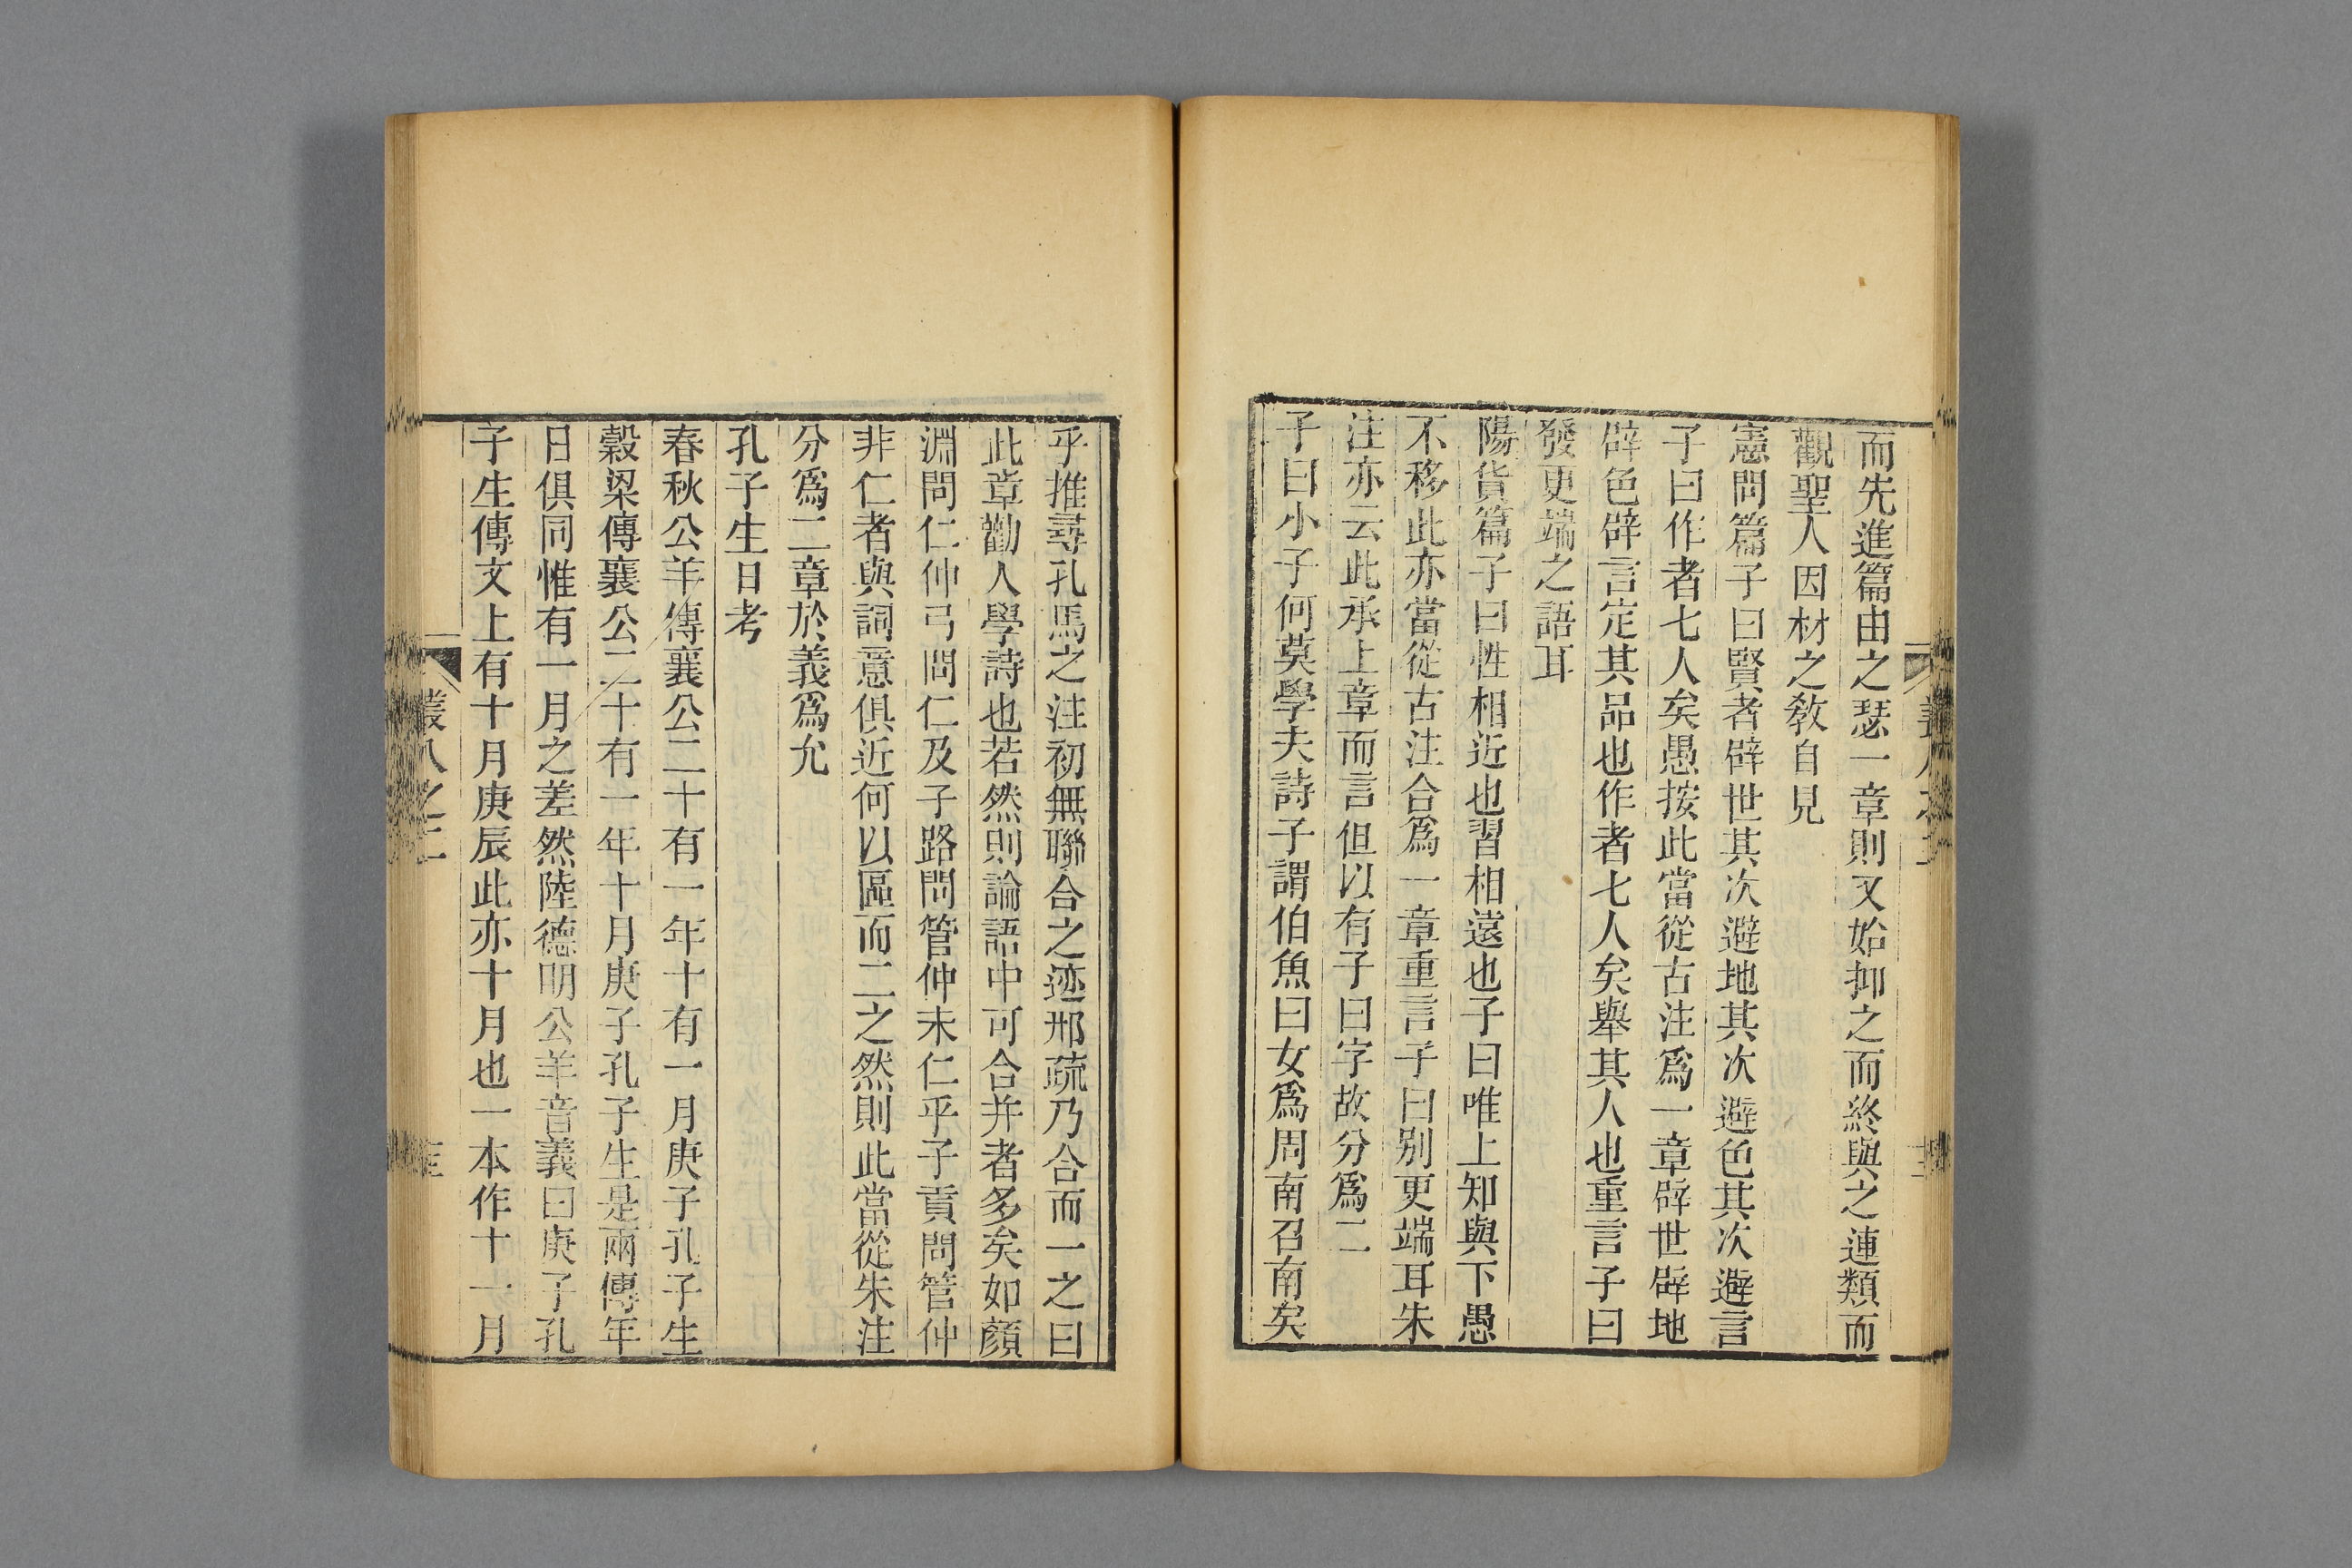 而先進篇由之瑟一章則又始抑之而終與之連類而
觀聖人因材之教自見
憲問篇子曰賢者辟世其次避地其次避色其次避言
子曰作者七人矣愚按此當從古注爲一章辟世辟地
辟色辟言定其品也作者七人矣舉其人也重言子曰
發更端之語耳
陽貨篇子曰性相近也習相遠也子曰唯上知與下愚
不移此亦當從古注合爲一章重言子曰别更端耳朱
注亦云此承上章而言但以有子曰字故分爲二
子曰小子何莫學夫詩子謂伯魚曰女爲周南召南矣
乎推尋孔馬之注初無聯合之迹邢疏乃合而一之曰
此章勸人學詩也若然則論語中可合并者多矣如顏
淵問仁仲弓問仁及子路問管仲未仁乎子貢問管仲
非仁者與詞意俱近何以區而二之然則此當從朱注
分爲二章於義爲允
孔子生日考
春秋公羊傳襄公二十有一年十有一月庚子孔子生
穀梁傳襄公二十有一年十月庚子孔子生是兩傳年
日俱同惟有一月之差然陸德明公羊音義曰庚子孔
子生傳文上有十月庚辰此亦十月也一本作十一月
叢八之二